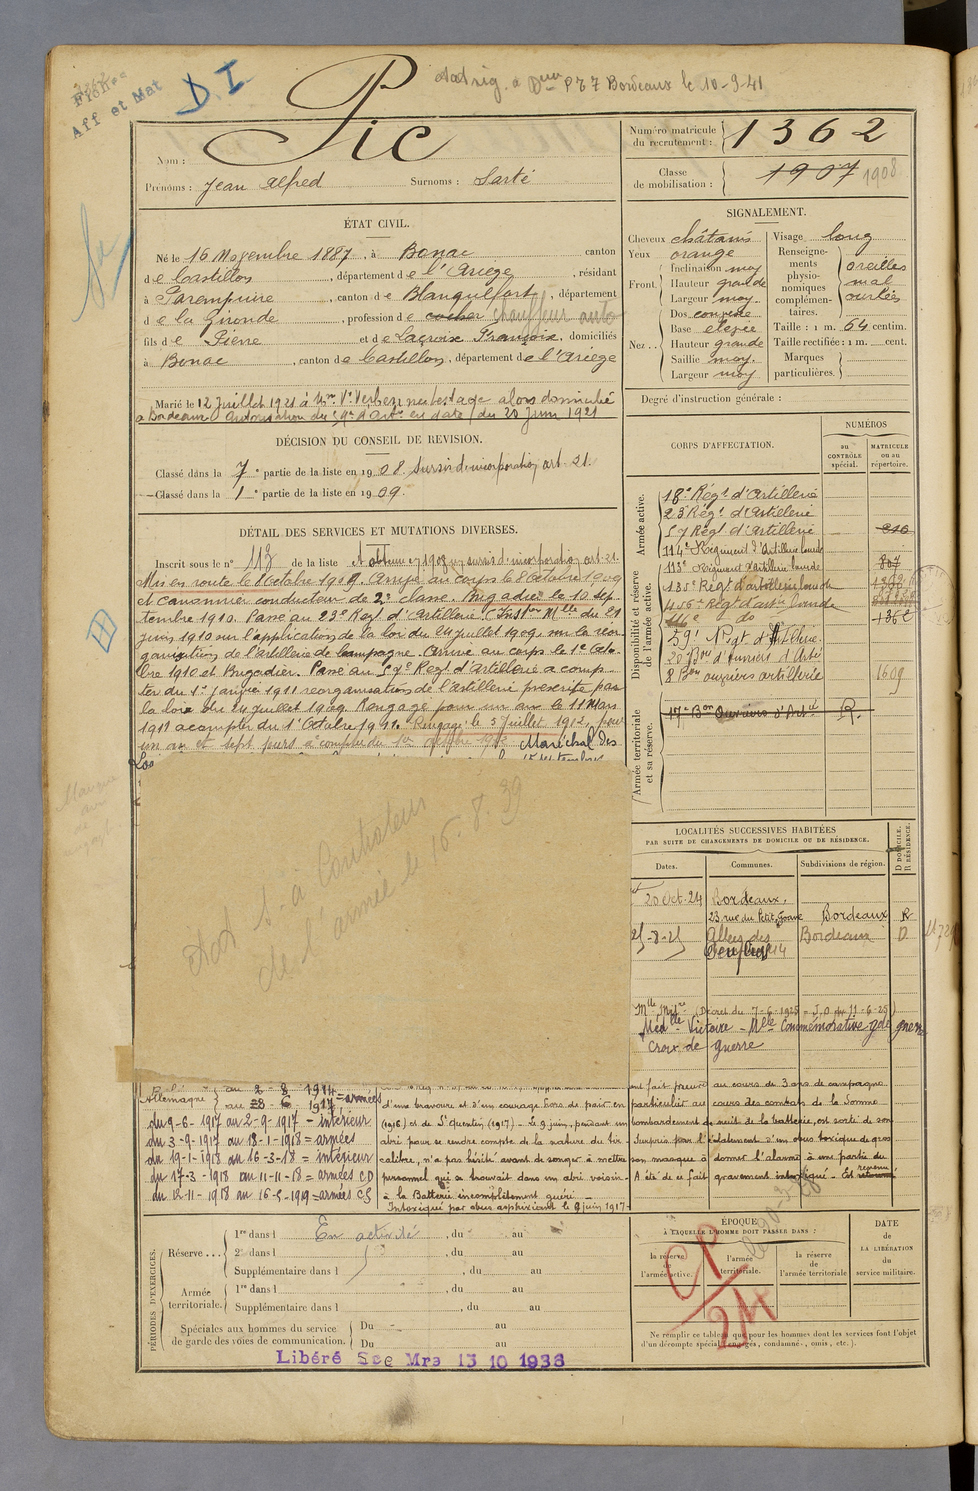 Fiches
Aff et Mat
D.I.
le 10-9-41
Pic
Nom :
Prénoms : Jean Alfred Surnoms : Sarté
Numéro matricule du recrutement : 1362
Classe de mobilisation : 1907 1908
ÉTAT CIVIL.
Né le 16 Novembre 1887, à Bonac canton
de Castillon, département de l'Ariège, résidant
à Parempuire, canton de Blanquefort, département
de la Gironde, profession de cocher chauffeur auto
fils de Pierre et de Lacroix Françoise, domiciliés
à Bonac, canton de Castillon, département de l'Ariège
Marié le 12 Juillet 1921 à
à Bordeaux Autorisation du en date du 20 Juin 1921
DÉCISION DU CONSEIL DE REVISION.
Classé dans la 7e partie de la liste en 1908. Sursis d'incorporation art. 21.
Classé dans la 1e partie de la liste en 1909.
DÉTAIL DES SERVICES ET MUTATIONS DIVERSES.
Inscrit sous le n° 113 de la liste 1908 sursis d'incorporation art. 21.
Mis en route le 8 Octobre 1909. Arrivé au corps le 8 Octobre 1909
et canonnier conducteur de 2e classe. Brigadier le 10 Sep
tembre 1910. Passé au 23e Reg. d'Artillerie (Inston Mlle du 21
juin 1910 sur l'application de la loi du 24 juillet 1909 sur la réor
ganisation de l'artillerie de campagne. Arrivé au corps le 1e Octo
bre 1910 et Brigadier. Passé au 57e Reg. d'Artillerie à comp
ter du 1e janvier 1911 réorganisation de l'artillerie prescrite par
la loi du 24 juillet 1909. Rengagé pour un an le 11 Mars
1911 à compter du 1e Octobre 1911. Rengagé le 3 Juillet 1912, pour
un an et sept jours à compter du 1er octobre 1912 Maréchal des
Log
à Contrôleur
de l'armée le 16.8.39
SIGNALEMENT.
Cheveux châtains
Yeux orange
Front. Inclinaison moy
Hauteur grande
Largeur moy.
Nez .. Dos convexe
Base élevée
Hauteur grande
Saillie moy.
Largeur moy
Visage long
Renseignements physionomiques complémentaires. oreilles mal ourlées
Taille : 1 m. 64 centim.
Taille rectifiée : 1 m. cent.
Marques particulières.
Degré d'instruction générale :
CORPS D'AFFECTATION.
NUMÉROS
au CONTRÔLE spécial.
MATRICULE ou au répertoire.
Armée active.
18e Régt d'Artillerie
23e Régt d'Artillerie
57 Régt d'Artillerie
114e Régiment d'Artillerie lourde
Disponibilité et réserve de l'armée active.
115e Régiment d'Artillerie lourde 807
Régt d'artillerie lourde
Régt d'artie lourde
do 1362
Bon d'Ouvriers d'Artie
8 Bon ouvriers artillerie 1609
Armée territoriale et sa réserve.
17e Bon Ouvriers d'Artie R.
LOCALITÉS SUCCESSIVES HABITÉES
PAR SUITE DE CHANGEMENTS DE DOMICILE OU DE RÉSIDENCE.
Dates. Communes. Subdivisions de région. D DOMICILE. R RÉSIDENCE.
20 Oct. 24 Bordeaux,
23 rue du Petit Goave Bordeaux R
25-8-25 Allées des Bordeaux D
Mlle Milre (Décret du 7-6-1925 J.O du 11-6-25)
Médlle Victoire - Mlle Commémorative gde guerre
Croix de guerre
Allemagne au 2-8-1914 = armées
au 28-6-1917
du 9-6-1917 au 2-9-1917 = intérieur
du 3-9-1917 au 18-1-1918 = armées
du 19-1-1918 au 16-3-18 = intérieur
du 17-3-1918 au 11-11-18 = armées CD
du 12-11-1918 au 16-5-1919 = armées CS
ont fait preuve au cours de 3 ans de campagne
d'une bravoure et d'un courage hors de pair en particulier au cours des combats de la Somme
(1916) et de St Quentin (1917) - Le 9 juin, pendant un bombardement de nuit de la batterie, est sorti de son
abri pour se rendre compte de la nature du tir. Surpris par l'éclatement d'un obus toxique de gros
calibre, n'a pas hésité avant de songer à mettre son masque à donner l'alarme à une partie du
personnel qui se trouvait dans un abri voisin. A été de ce fait gravement intoxiqué - Est revenu
à la Batterie incomplètement guéri -
Intoxiqué par obus asphyxiant le 9 juin 1917-
PÉRIODES D'EXERCICES.
Réserve ... 1re dans l En activité, du au
2e dans l , du au
Supplémentaire dans l , du au
Armée territoriale. 1re dans l , du au
Supplémentaire dans l , du au
Spéciales aux hommes du service de garde des voies de communication. Du au
Du au
Libéré Sce Mre 13 10 1936
ÉPOQUE
À LAQUELLE L'HOMME DOIT PASSER DANS :
la réserve de l'armée active. l'armée territoriale. la réserve de l'armée territoriale
DATE DE LA LIBÉRATION du service militaire.
CP
24
Ne remplir ce tableau que pour les hommes dont les services font l'objet
d'un décompte spécial (engagés, condamnés, omis, etc.).